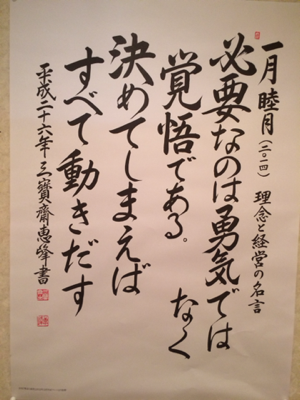 一月 睦月(二〇一四) 理念と経営の名言
必要なのは勇気では
なく
覚悟である。
決めてしまえば
すべて動きだす
平成二十六年 三寶齋惠峰書